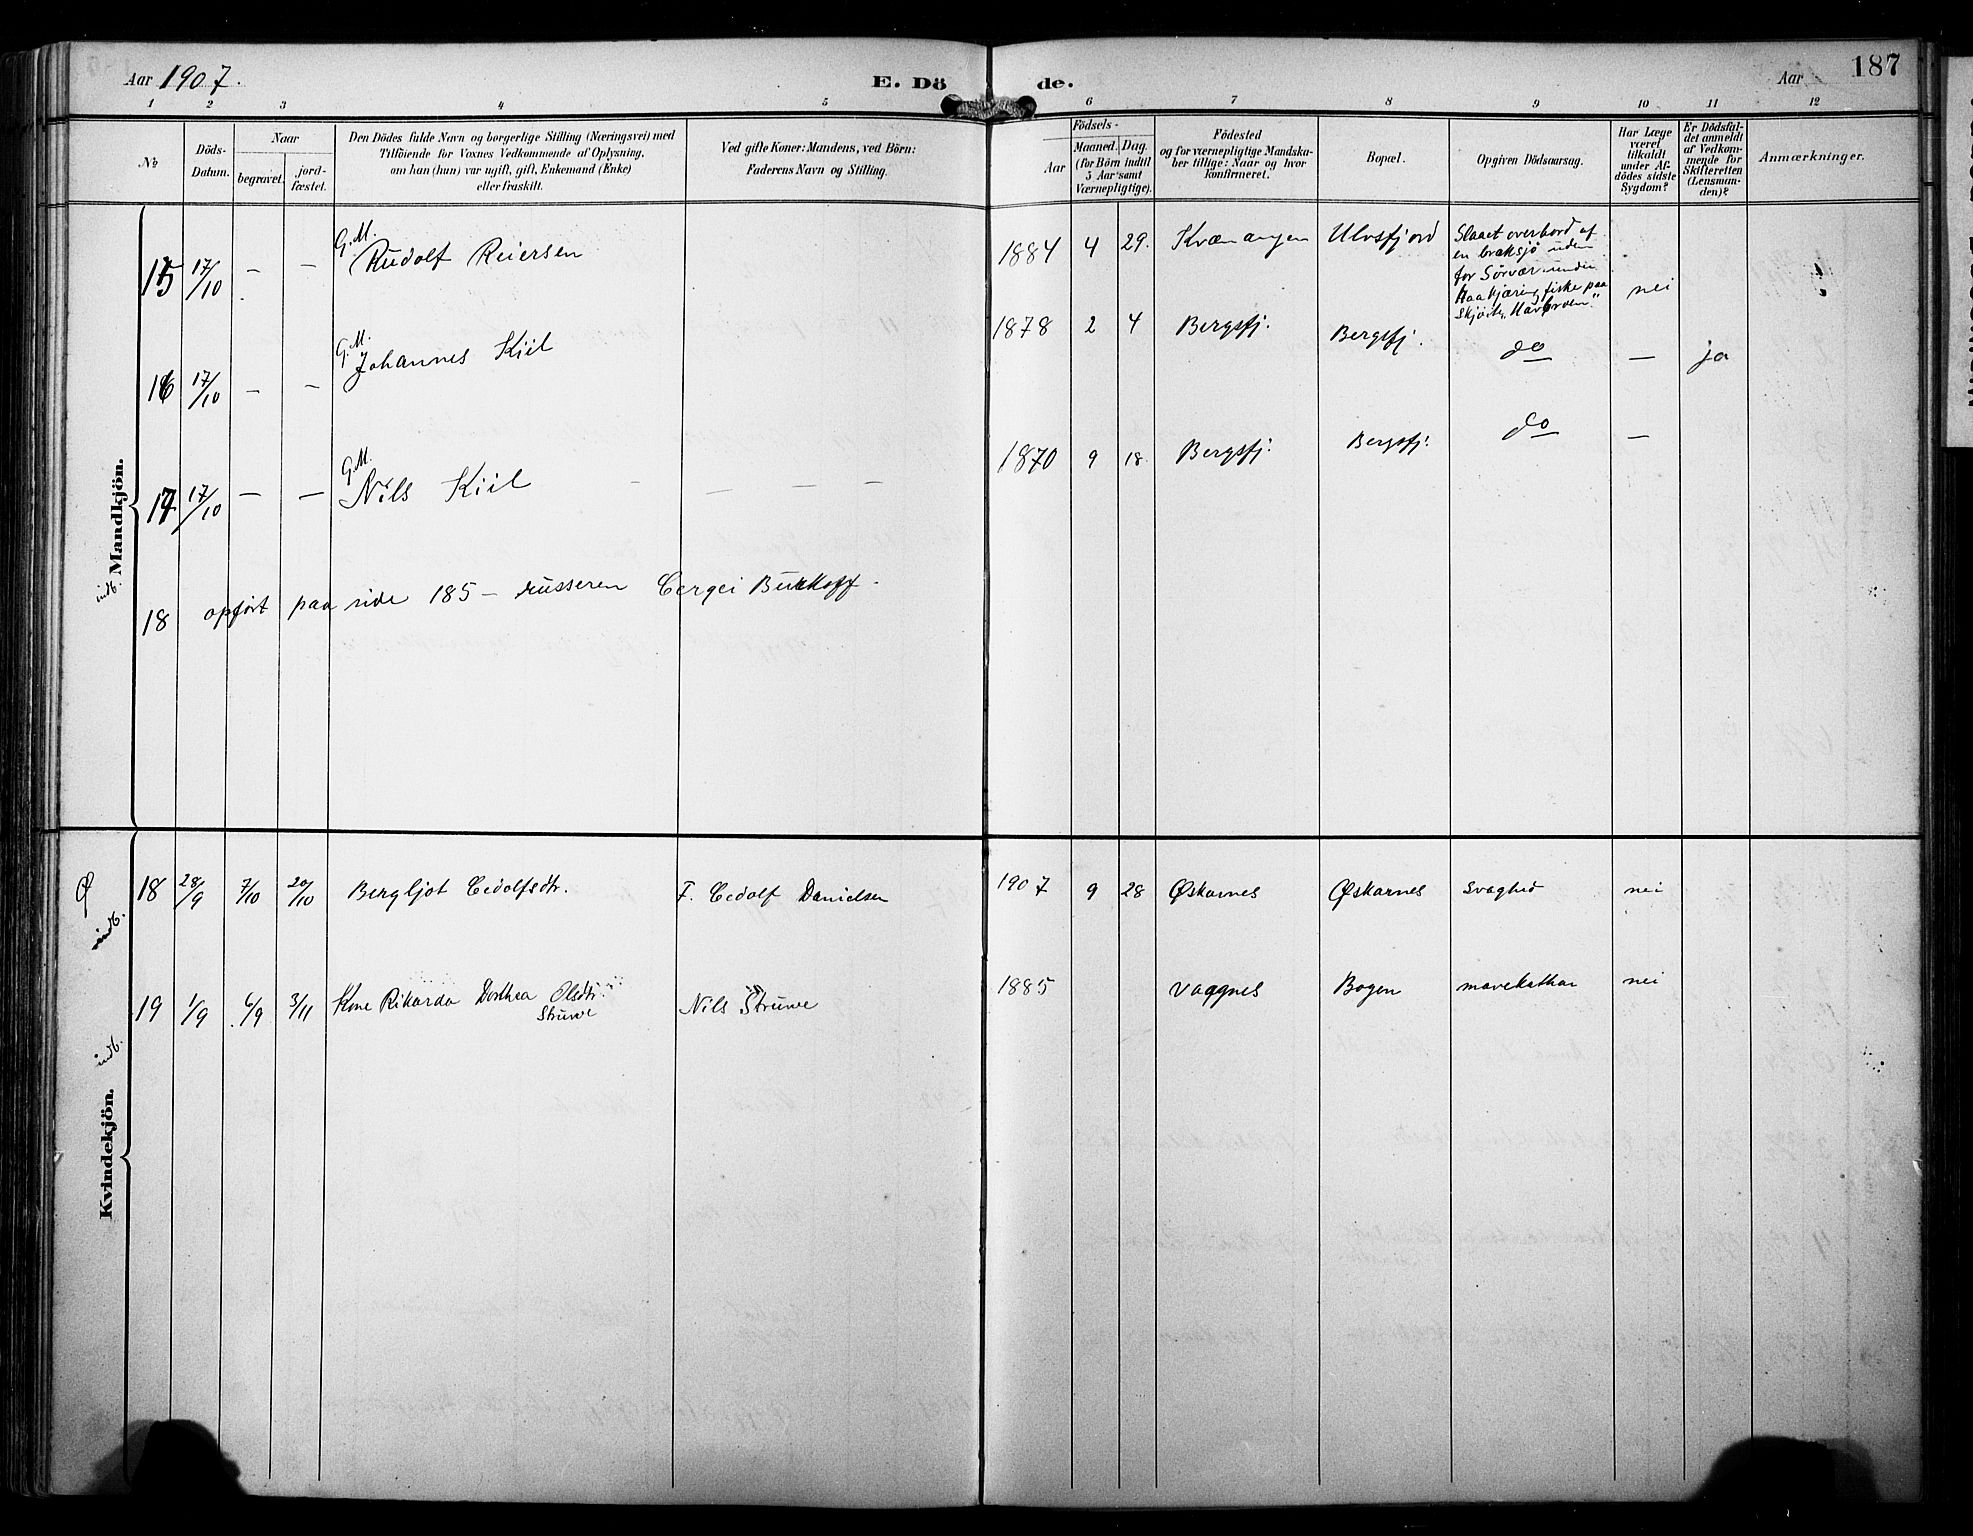 Aar 1907.
E. Dö
de.
Aar
187
1 2 3 4 5 6 7 8 9 10 11 12
No
Döds-
Datum.
Naar
begravet.
jord-
fæstet.
Den Dödes fulde Navn og borgerlige Stilling (Næringsvei) med
Tilföiende for Voxnes Vedkommende af Oplysning,
om han (hun) var ugift, gift, Enkemand (Enke)
eller fraskilt.
Ved gifte Koner: Mandens, ved Börn:
Faderens Navn og Stilling.
Födsels-
Aar
Maaned. Dag.
(for Börn indtil
5 Aar samt
Værnepligtige).
Födested
og for værnepligtige Mandska-
ber tillige: Naar og hvor
konfirmeret.
Bopæl.
Opgiven Dödsaarsag.
Har Læge
været
tilkaldt
under Af-
dödes sidste
Sygdom?
Er Dödsfal-
det anmeldt
af Vedkom-
mende for
Skifteretten
(Lensman-
den)?
Anmærkninger.
Mandkjön.
15 17/10 — — G.M. Rudolf Reiersen 1884 4 29. Kvænangen Ulvsfjord
Slaaet overbord af
en braksjø uden
for Sörvær under
Haakjæring fiske paa
nei
16 17/10 — — G.M. Johannes Kiil 1878 2 4 Bergsfj. Bergsfj. do — ja
17 17/10 — — G.M. Nils Kiil — — — — 1870 9 18. Bergsfj. Bergsfj. do —
indb.
18 opført paa side 185 — russeren Cergei
Kvindekjön.
Ø
indb.
18 28/9 7/10 20/10 Bergljot Cedolfsdtr. F. Cedolf Danielsen 1907 9 28 Øskarnes Øskarnes svaghed nei
indb.
19 1/9 6/9 3/11 Kone Rikarda Dorthea Olsdtr. Nils Struwe 1885 Vaggnes Bogen mavekathar nei
Struwe